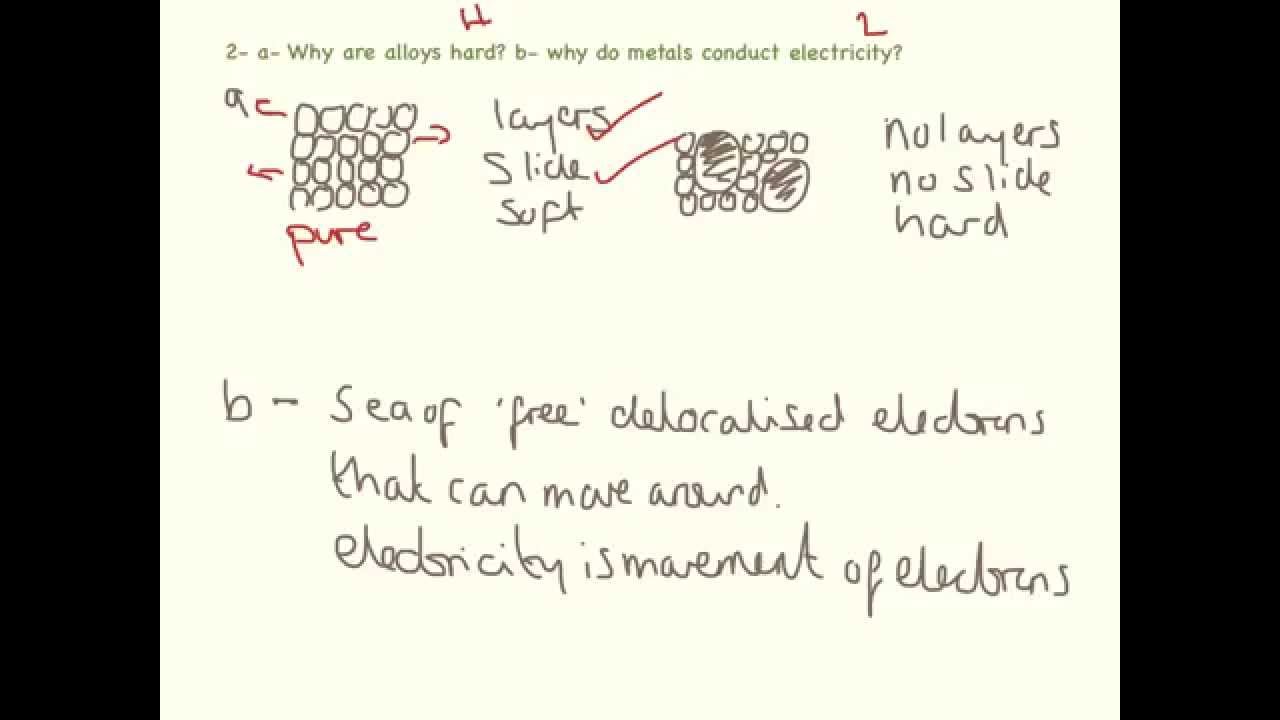 4 2
2- a- Why are alloys hard? b- why do metals conduct electricity?
a
layers
Slide
Soft
pure
no layers
no slide
hard
b - Sea of 'free' delocalised electrons
that can move around.
electricity is movement of electrons